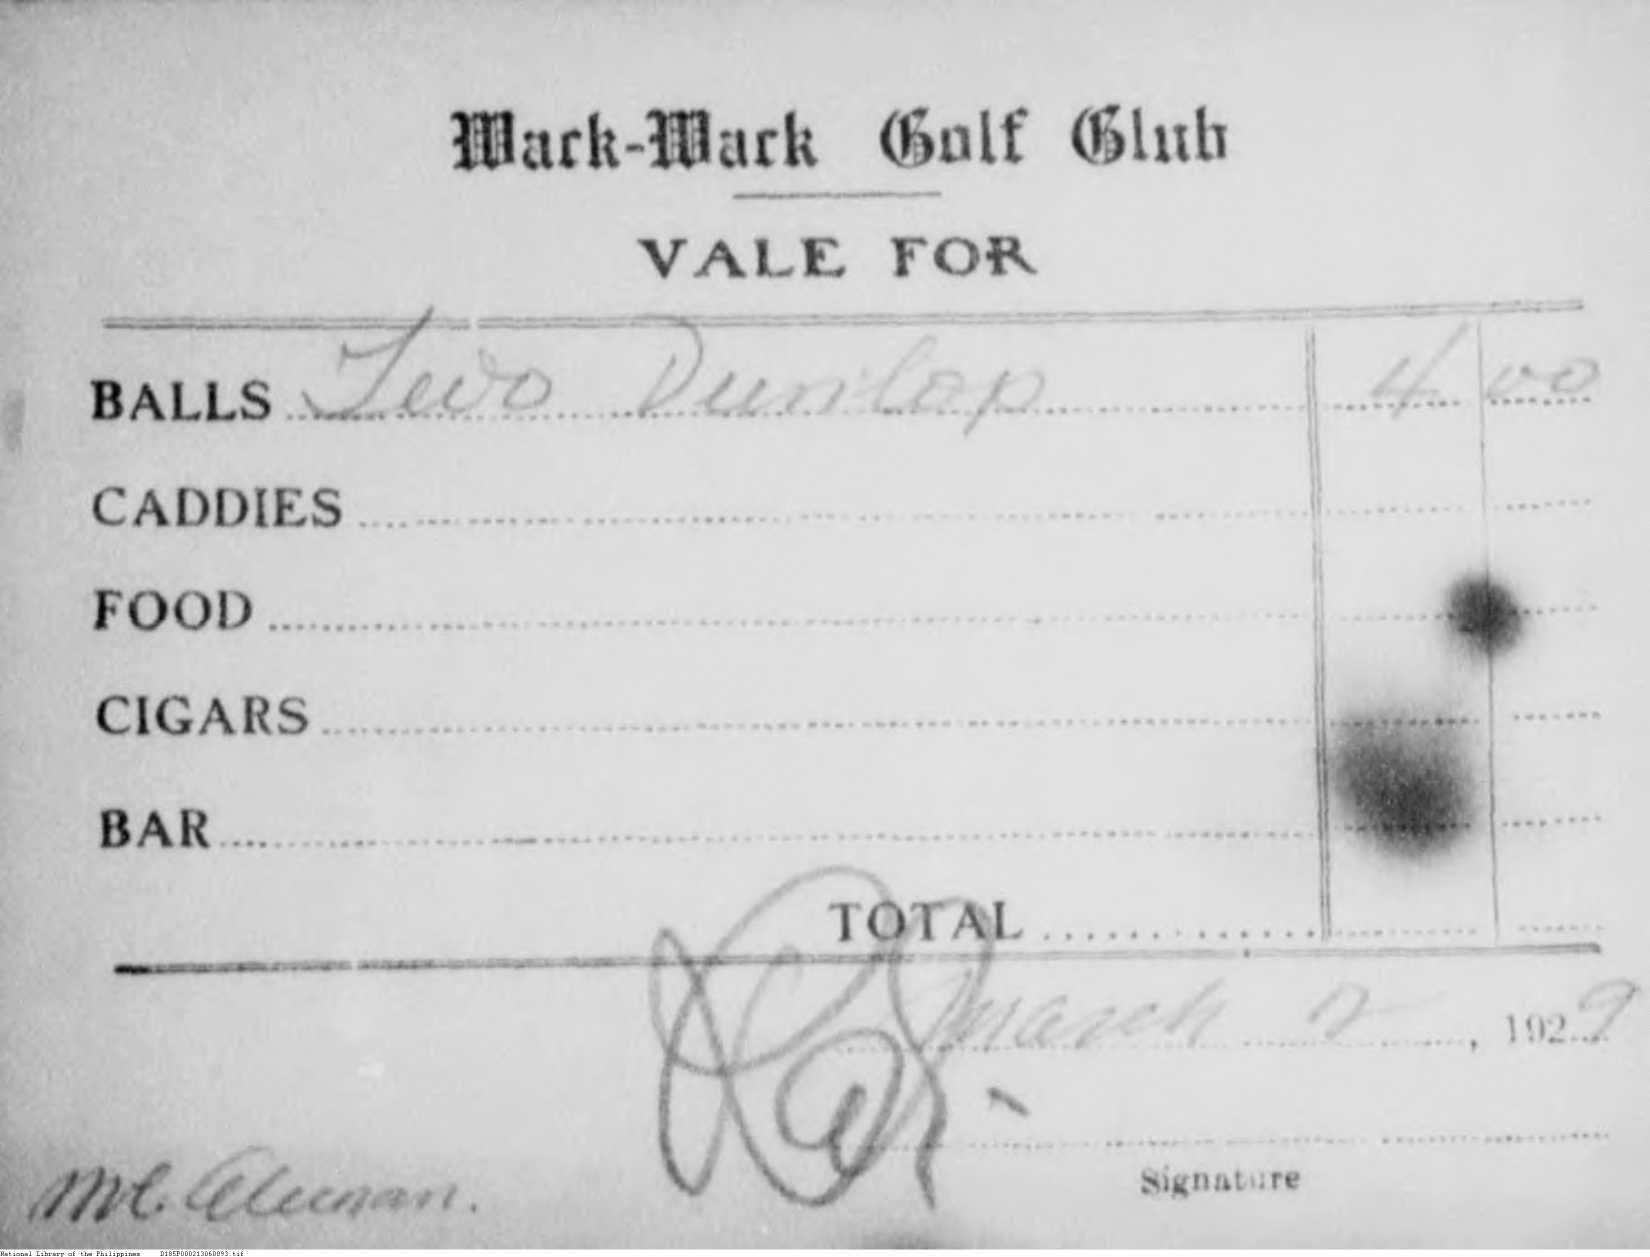 Wack-Wack Golf Club
VALE FOR
BALLS Two Dunlap 4 00
CADDIES
FOOD
CIGARS
BAR
TOTAL
March 2, 1929
Signature
Mc. Aleman.
National Library of the Philippines D185P000213060093.tif